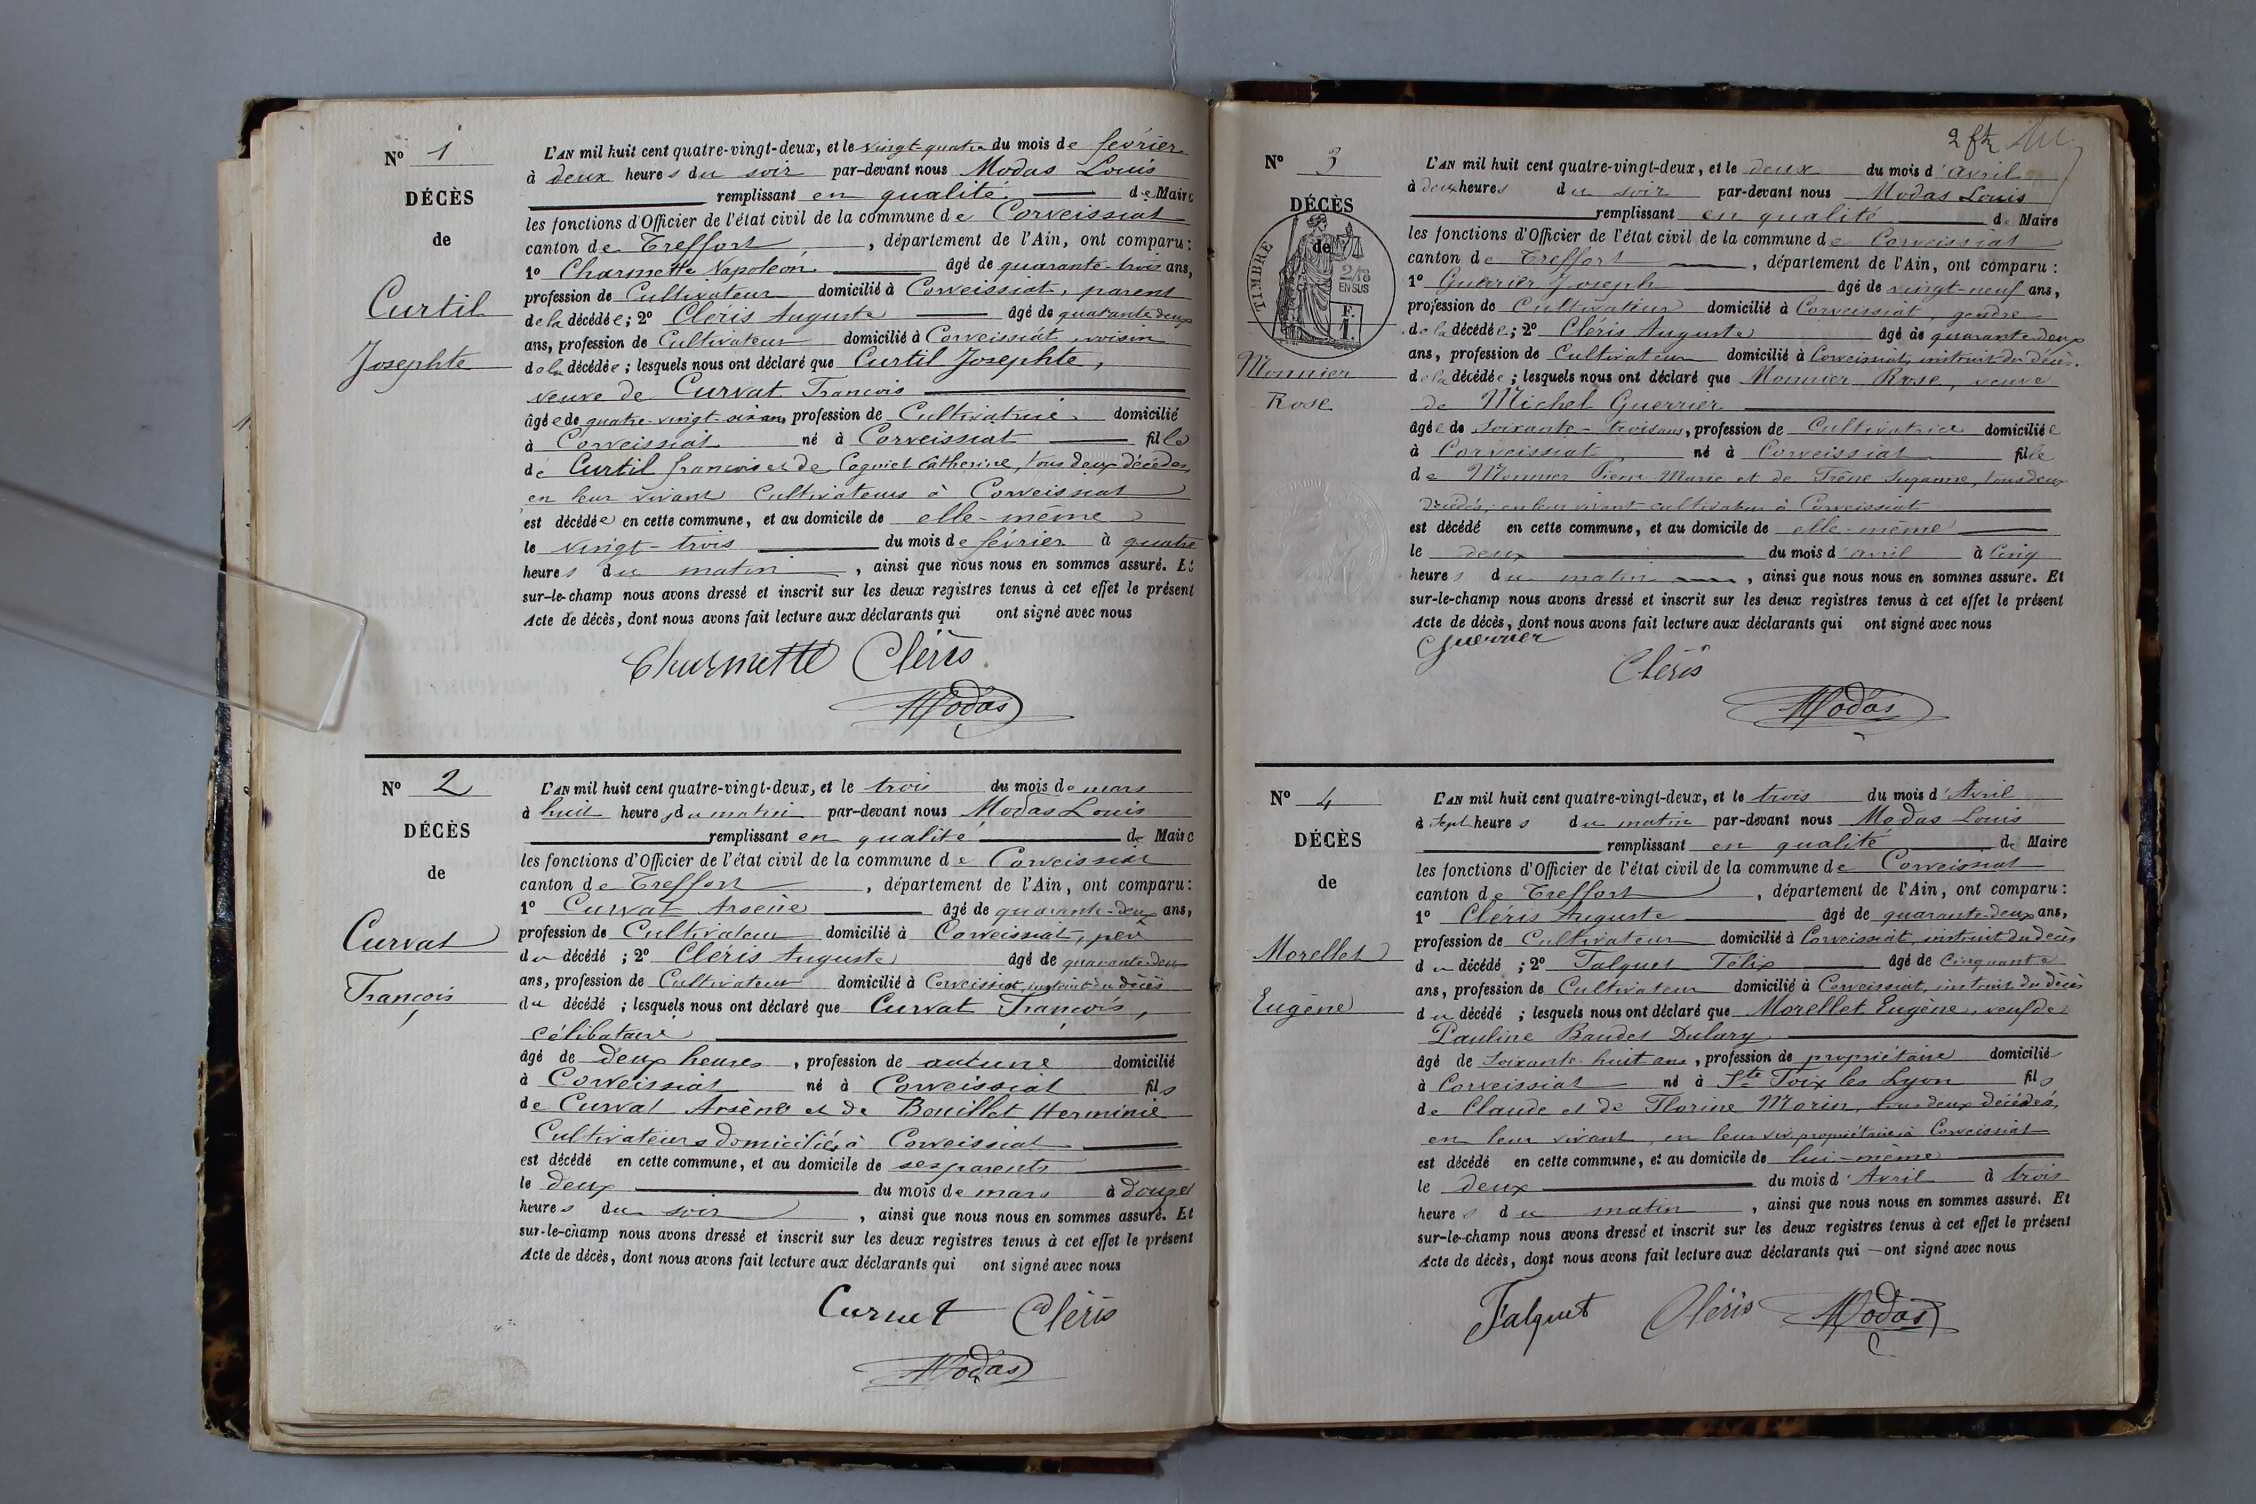 N° 1
DÉCÈS
de
Curtil
Josephte
L'AN mil huit cent quatre-vingt-deux, et le vingt-quatre du mois de février
à deux heures du soir par-devant nous Modas Louis
remplissant en qualité de Maire
les fonctions d'Officier de l'état civil de la commune de Corveissiat
canton de Treffort, département de l'Ain, ont comparu:
1° Charmette Napoléon âgé de quarante-trois ans,
profession de Cultivateur domicilié à Corveissiat, parent
de la décédée; 2° Cléris Auguste âgé de quarante deux
ans, profession de Cultivateur domicilié à Corveissiat, voisin
de la décédée; lesquels nous ont déclaré que Curtil Josephte,
veuve de Curvat François
âgée de quatre-vingt-six ans profession de Cultivatrice domicilié
à Corveissiat né à Corveissiat fille
de Curtil françois et de Catherine, tous deux décédés
en leur vivant Cultivateurs à Corveissiat
est décédée en cette commune, et au domicile de elle-même
le vingt-trois du mois de février à quatre
heures du matin, ainsi que nous nous en sommes assuré. Et
sur-le-champ nous avons dressé et inscrit sur les deux registres tenus à cet effet le présent
Acte de décès, dont nous avons fait lecture aux déclarants qui ont signé avec nous
Charmette Cléris
Modas
N° 2
DÉCÈS
de
Curvat
François
L'AN mil huit cent quatre-vingt-deux, et le trois du mois de mars
à huit heures du matin par-devant nous Modas Louis
remplissant en qualité de Maire
les fonctions d'Officier de l'état civil de la commune de Corveissiat
canton de Treffort, département de l'Ain, ont comparu:
1° Curvat Arsène âgé de quarante-deux ans,
profession de Cultivateur domicilié à Corveissiat, père
du décédé; 2° Cléris Auguste âgé de quarante deux
ans, profession de Cultivateur domicilié à Corveissiat, instruit du décès
du décédé; lesquels nous ont déclaré que Curvat François,
célibataire
âgé de deux heures, profession de aucune domicilié
à Corveissiat né à Corveissiat fils
de Curvat Arsène et de Bouillet Herminie
Cultivateurs domiciliés à Corveissiat
est décédé en cette commune, et au domicile de ses parents
le deux du mois de mars à douze
heures du soir, ainsi que nous nous en sommes assuré. Et
sur-le-champ nous avons dressé et inscrit sur les deux registres tenus à cet effet le présent
Acte de décès, dont nous avons fait lecture aux déclarants qui ont signé avec nous
Curvat Cléris
Modas
2
N° 3
DÉCÈS
de
TIMBRE
2/10
EN SUS
F.
1.
Monnier
Rose
L'AN mil huit cent quatre-vingt-deux, et le deux du mois d'avril
à deux heures du soir par-devant nous Modas Louis
remplissant en qualité de Maire
les fonctions d'Officier de l'état civil de la commune de Corveissiat
canton de Treffort, département de l'Ain, ont comparu:
1° Guerrier Joseph âgé de vingt-neuf ans,
profession de Cultivateur domicilié à Corveissiat, gendre
de la décédée; 2° Cléris Auguste âgé de quarante deux
ans, profession de Cultivateur domicilié à Corveissiat, instruit du décès.
de la décédée; lesquels nous ont déclaré que Monnier Rose, veuve
de Michel Guerrier
âgée de soixante-trois ans, profession de Cultivatrice domiciliée
à Corveissiat né à Corveissiat fille
de Monnier Pierre Marie et de Suzanne, tous deux
décédés, en leur vivant cultivateurs à Corveissiat
est décédé en cette commune, et au domicile de elle-même
le deux du mois d'avril à Cinq
heures du matin, ainsi que nous nous en sommes assuré. Et
sur-le-champ nous avons dressé et inscrit sur les deux registres tenus à cet effet le présent
Acte de décès, dont nous avons fait lecture aux déclarants qui ont signé avec nous
Guerrier
Cléris
Modas
N° 4
DÉCÈS
de
Morellet
Eugène
L'AN mil huit cent quatre-vingt-deux, et le trois du mois d'Avril
à Sept heures du matin par-devant nous Modas Louis
remplissant en qualité de Maire
les fonctions d'Officier de l'état civil de la commune de Corveissiat
canton de Treffort, département de l'Ain, ont comparu:
1° Cléris Auguste âgé de quarante-deux ans,
profession de Cultivateur domicilié à Corveissiat, instruit du décès
du décédé; 2° Falquet Félix âgé de Cinquante
ans, profession de Cultivateur domicilié à Corveissiat, instruit du décès
du décédé; lesquels nous ont déclaré que Morellet Eugène, veuf de
Pauline Baudet Dulary
âgé de Soixante-huit ans, profession de propriétaire domicilié
à Corveissiat né à Ste Foix les Lyon fils
de Claude et de Florine Morin, tous deux décédés,
en leur vivant, en leur viv. propriétaires à Corveissiat
est décédé en cette commune, et au domicile de lui-même
le deux du mois d'Avril à trois
heures du matin, ainsi que nous nous en sommes assuré. Et
sur-le-champ nous avons dressé et inscrit sur les deux registres tenus à cet effet le présent
Acte de décès, dont nous avons fait lecture aux déclarants qui ont signé avec nous
Falquet Cléris Modas